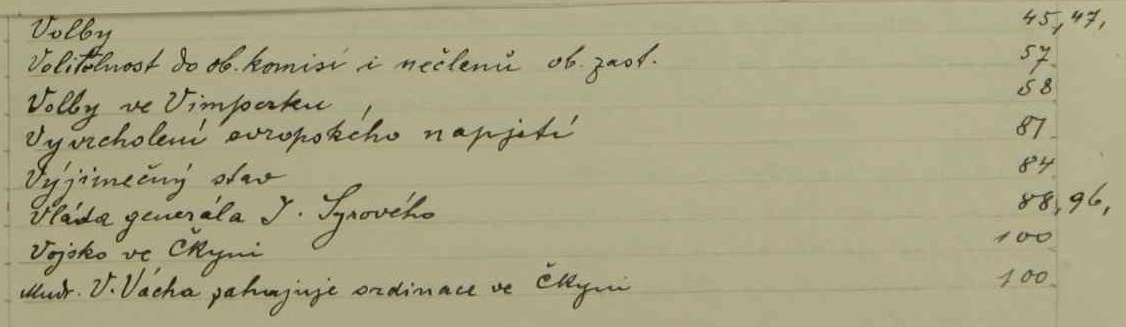 Volby 45, 47,
Volitelnost do ob. komisí i nečlenů ob. zast. 57
Volby ve Vimperku 58
Vyvrcholení evropského napjetí 81
Výjimečný stav 84
Vláda generála J. Syrového 88, 96,
Vojsko ve Čkyni 100
Mudr. V. Vácha zahajuje ordinace ve Čkyni 100